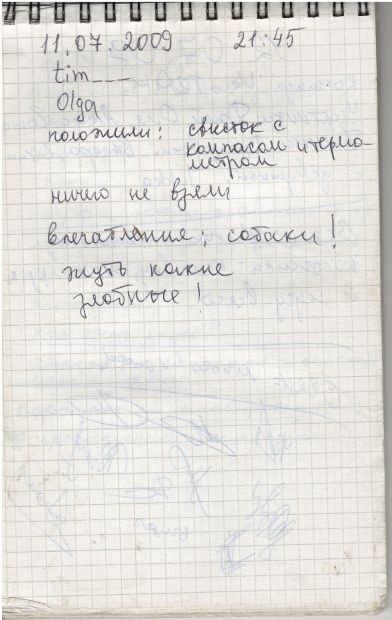 11.07.2009 21:45
tim___
Olga
положили: свисток с
компасом и термо-
метром
ничего не взяли
впечатления: собаки!
жуть какие
злобные!